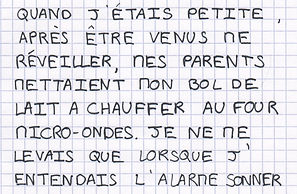 QUAND J'ÉTAIS PETITE,
APRÈS ÊTRE VENUS ME
RÉVEILLER, MES PARENTS
METTAIENT MON BOL DE
LAIT A CHAUFFER AU FOUR
MICRO-ONDES. JE NE ME
LEVAIS QUE LORSQUE J'
ENTENDAIS L'ALARME SONNER